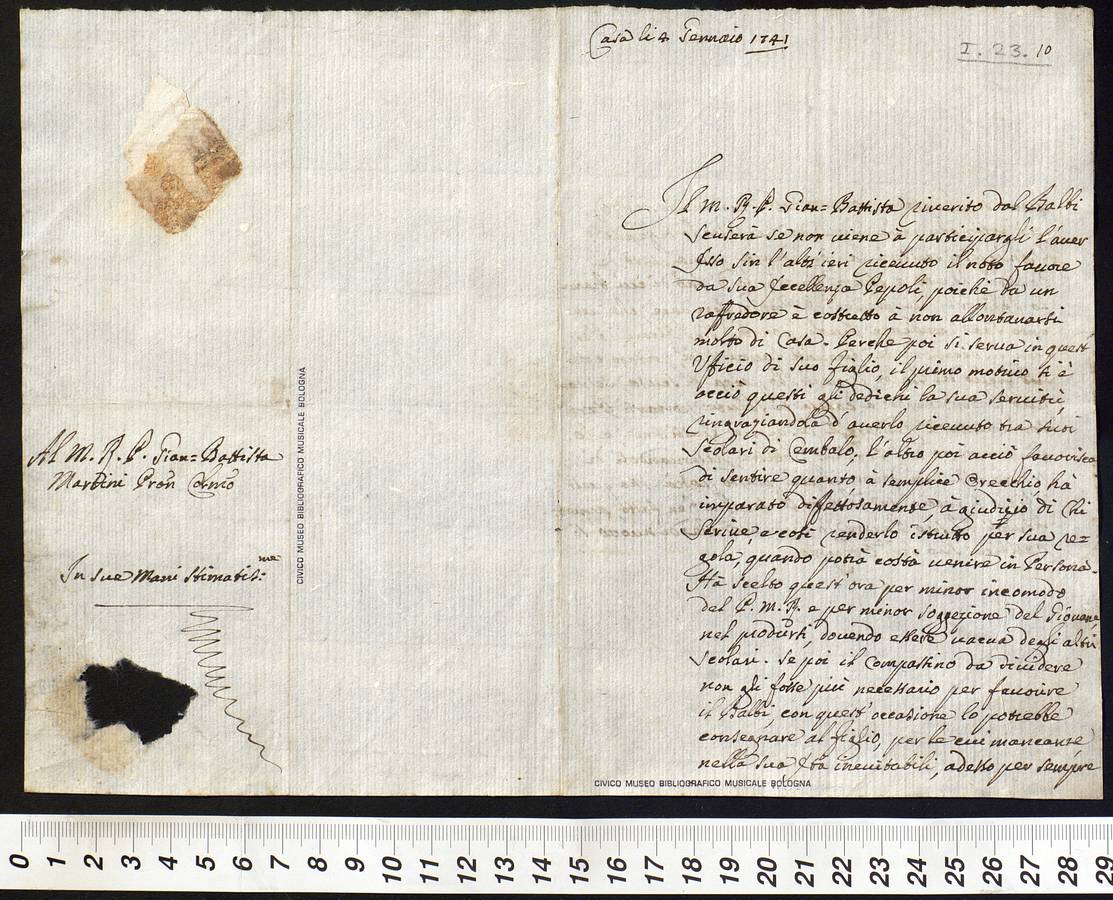 Al M. R. P. Gian=Battista
Martini Pron Colmo
In sue Mani stimatiss:me
CIVICO MUSEO BIBLIOGRAFICO MUSICALE BOLOGNA
Casa li 4 Gennaio 1741
I. 23. 10
Il M. R. P. Gian=Battista riverito dal Balbi
scuserà se non viene à participargli l'aver
Esso sin l'altr'ieri ricevuto il noto favore
da sua Eccellenza Pepoli, poichè da un
raffredore è costretto à non allontanarsi
molto di Casa. Perche poi si serva in quest'
Ufficio di suo figlio, il primo motivo si è
acciò questi gli dedichi la sua servitù,
ringraziandola d'averlo ricevuto tra suoi
Scolari di Cembalo; l'altro poi acciò favorisca
di sentire quanto à semplice Orecchio hà
imparato diffettosamente, à giudicio di chi
scrive, e così renderlo istrutto per sua re=
gola, quando potrà costà venire in Persona.
Hà scelto quest'ora per minor incomodo
del P. M. R. e per minor soggezione del Giovane
nel prodursi, dovendo essere vacua degli altri
scolari. Se poi il Compassino da dividere
non gli fosse più necessario per favorire
il Balbi, con quest'occasione lo potrebbe
consegnare al figlio, per le cui mancanze
nella sua Età inevitabili, adesso per sempre
CIVICO MUSEO BIBLIOGRAFICO MUSICALE BOLOGNA
0 1 2 3 4 5 6 7 8 9 10 11 12 13 14 15 16 17 18 19 20 21 22 23 24 25 26 27 28 29